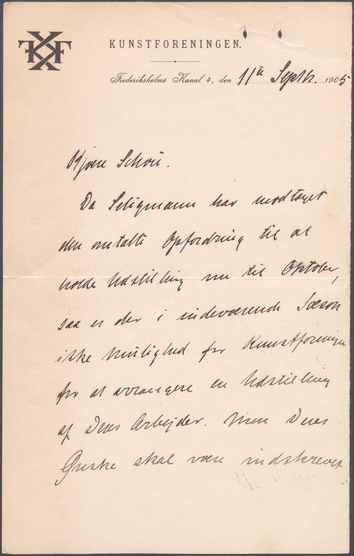 KUNSTFORENINGEN.
Frederiksholms Kanal 4, den 11te Septb. 1905
Kjære Schou.
Da Seligmann har modtaget
den omtalte Opfordring til at
holde Udstilling nu til Oktober,
saa er der i indeværende Sæson
ikke Mulighed for Kunstforeningen
for at arrangere en Udstilling
af Deres Arbejder. Men Deres
Ønske skal være indskrevet